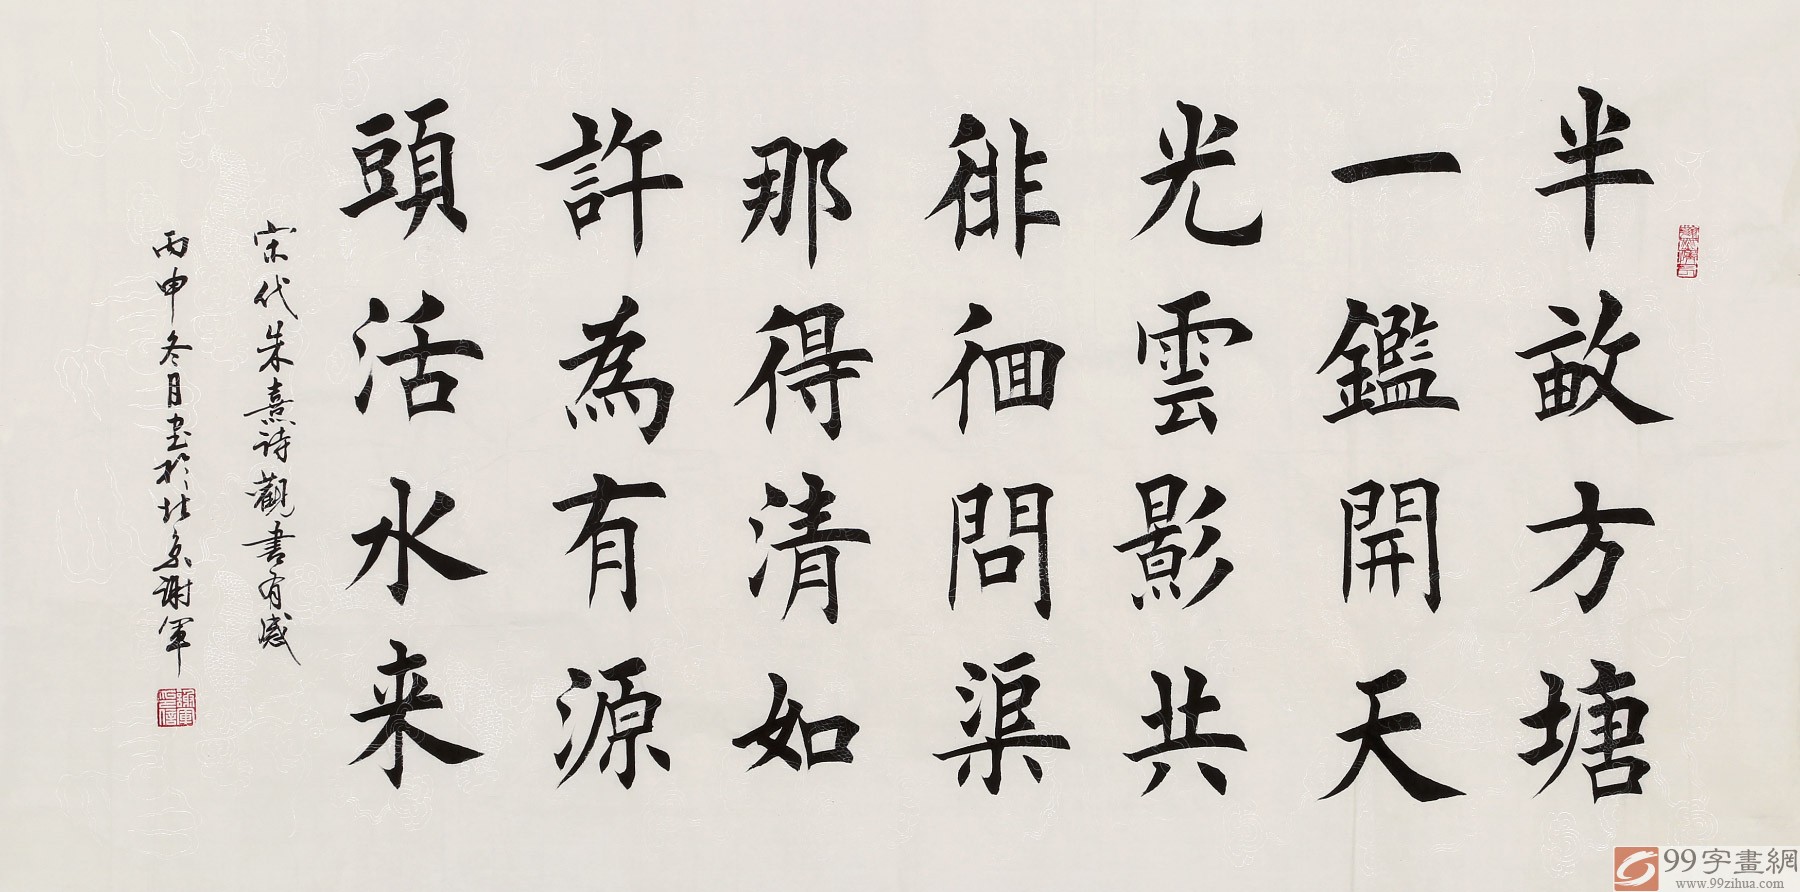 半畝方塘
一鑑開天
光雲影共
徘徊問渠
那得清如
許為有源
頭活水来
宋代朱熹詩觀書有感
丙申冬月书於北京谢軍
99字畫網
www.99zihua.com